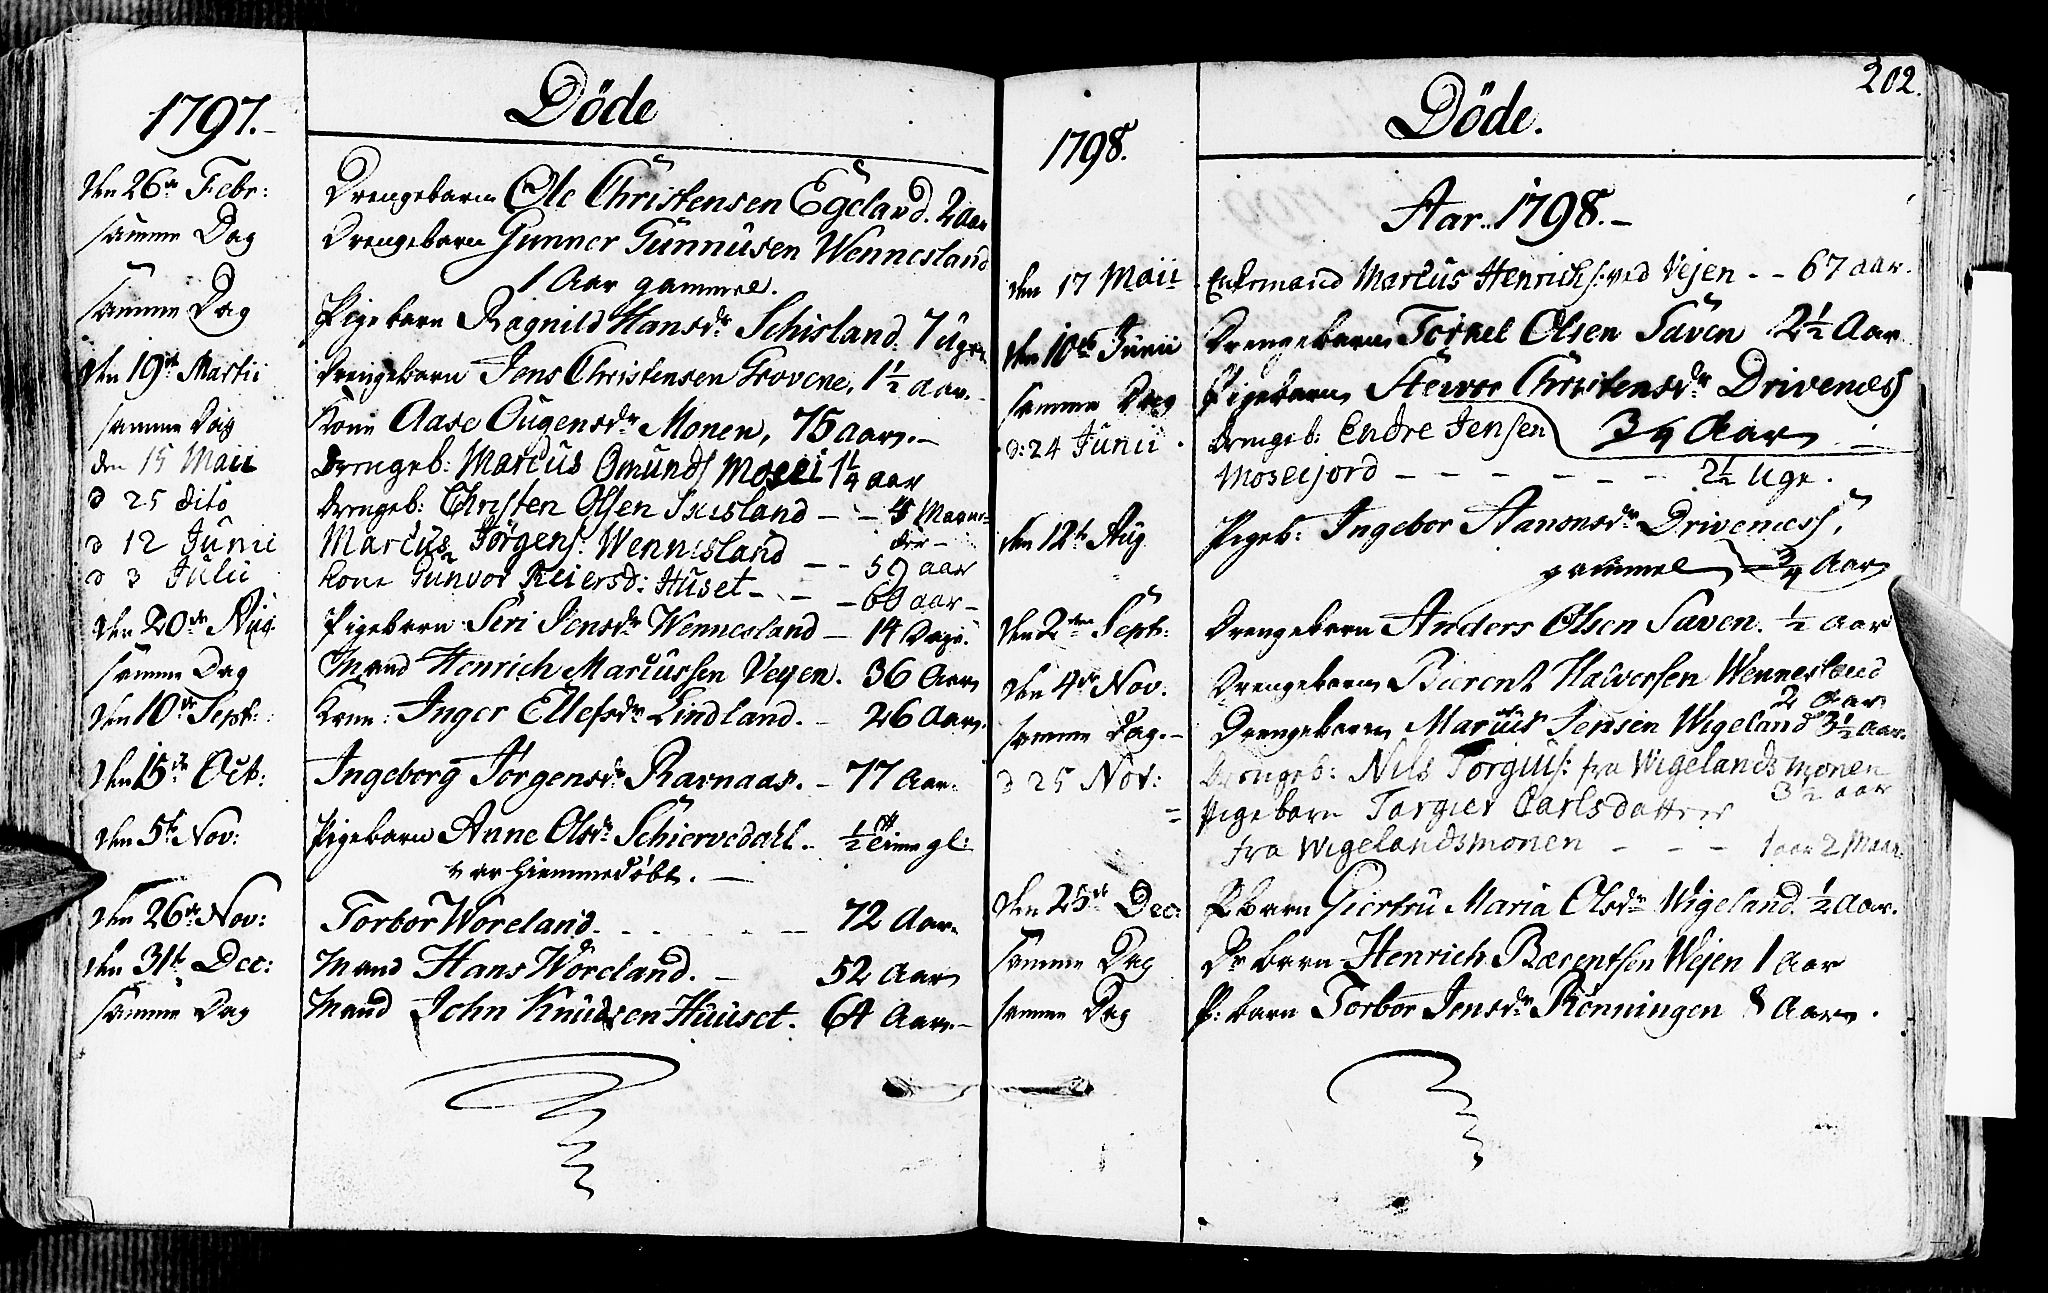 1797.-
Döde
den 26de Febr: Drengebarn Ole Christensen Egeland. 2 Aar
samme Dag Drengebarn Gunner Gunnusen Wennesland
1 Aar gammel.
samme Dag Pigebarn Ragnild Hansdr Schisland. 7 Uger
den 19de Martii Drengebarn Jens Christensen Grovene, 1½ aar.-
samme Dag Kone Aase Ougensdr Monen, 75 aar.-
den 15 Maii Drengeb: Marcus Omunds Mosei 1¼ aar
d 25 dito Drengeb: Christen Olsen Skisland - - 4 Maane=
der -
d 12 Junii Marcus Jörgens: Wennesland - - 59 aar
d 3 Julii kone Gunvor Reiersd: Huset - - - 60 aar -
den 20de Aug. Pigebarn Siri Jensdr Wennesland - 14 Dage.
samme Dag Mand Henrich Marcussen Veyen. 36 Aar
den 10de Sept: Kone: Inger Ellefsdr Lindland. - 26 Aar.
den 15de Oct: Ingeborg Jörgensdr Ravnaas. - 77 Aar.
den 5te Nov: Pigebarn Anne Olsdr Schiervedahl. ½ Time gl:
var hiemmedöbt. -
den 26de Nov: Torbor Woreland. - - - - - 72 Aar.
den 31te Dec: Mand Hans Woreland. - 52 Aar
samme Dag Mand John Knudsen Huuset. 64 Aar.-
202.
1798.
Döde.
Aar. 1798.-
den 17 Maii Enkemand Marcus Henrichs: ved Vejen - - 67 aar.
den 10de Junii Drengebarn Torkel Olsen Saven 2½ Aar
samme Dag Pigebarn Stewor Christensdr Drivenes
3/4 Aar
d: 24 Junii Drengeb: Endre Jensen
Moseejord - - - - - - 2½ Uge.
den 12te Aug Pigeb: Ingebor Aanonsdr Drivenes,
gammel 3/4 Aar
den 2den Sept: Drengebarn Anders Olsen Saven. ½ aar
den 4de Nov. Drengebarn Bierent Halvorsen Wennesland
2 Aar
samme Dag.- Drengebarn Marcus Jensen Wigeland 3½ aar.
d 25 Nov: Drengeb: Nils Torgius: fra Wigelandsmonen
3½ aar
= Pigebarn Torgier Carlsdatter
fra Wigelandsmonen - - - 1 aar 2 Maan:
den 25de Dec: P barn Giertru Maria Olsdr Wigeland. ½ Aar.
samme Dag Dr barn Henrich Bærentsen Wejen 1 Aar
samme Dag P: barn Torbor Jensdr Rönningen 8 Aar.